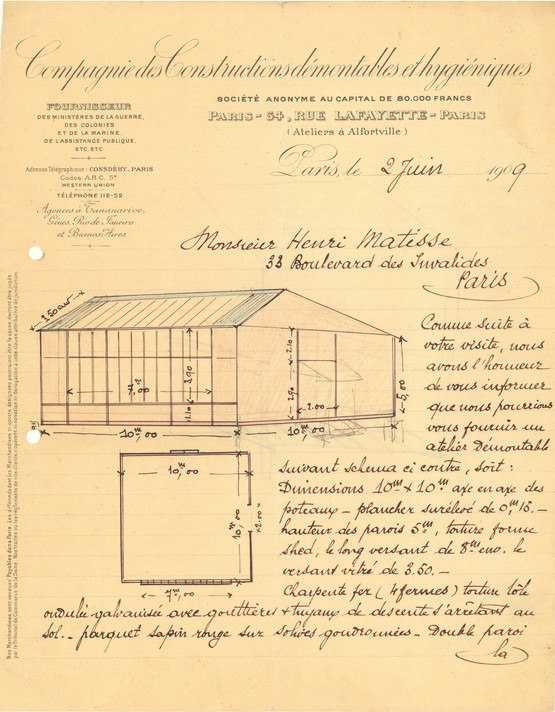 Compagnie des Constructions démontables et hygiéniques
SOCIÉTÉ ANONYME AU CAPITAL DE 80.000 FRANCS
PARIS - 54, RUE LAFAYETTE - PARIS
(Ateliers à Alfortville)
FOURNISSEUR
DES MINISTÈRES DE LA GUERRE,
DES COLONIES
ET DE LA MARINE.
DE L'ASSISTANCE PUBLIQUE,
ETC. ETC.
Adresse Télégraphique: CONSDÉHY. PARIS
Codes A.B.C. 5e
WESTERN UNION
TÉLÉPHONE 118-59
Agences à Tananarive,
Gênes, Rio de Janeiro
et Buenos Aires.
Paris, le 2 Juin 1909
Monsieur Henri Matisse
33 Boulevard des Invalides
Paris
Comme suite à
votre visite, nous
avons l'honneur
de vous informer
que nous pourrions
vous fournir un
atelier démontable
suivant schema ci contre, soit :
Dimensions 10m x 10m axe en axe des
poteaux - plancher surélevé de 0m,15. -
hauteur des parois 5m, toiture forme
shed, le long versant de 8m env. le
versant vitré de 3.50. -
Charpente fer (4 fermes) toiture tôle
ondulée galvanisée avec gouttières & tuyaux de descente s'arrêtant au
sol. - parquet sapin rouge sur solives goudronnées - Double paroi
la
3.90
1.10
10m,00
2.10
2.90
2.00
5,00
10m,00
10m,00
10m,00
2.00
7m,00